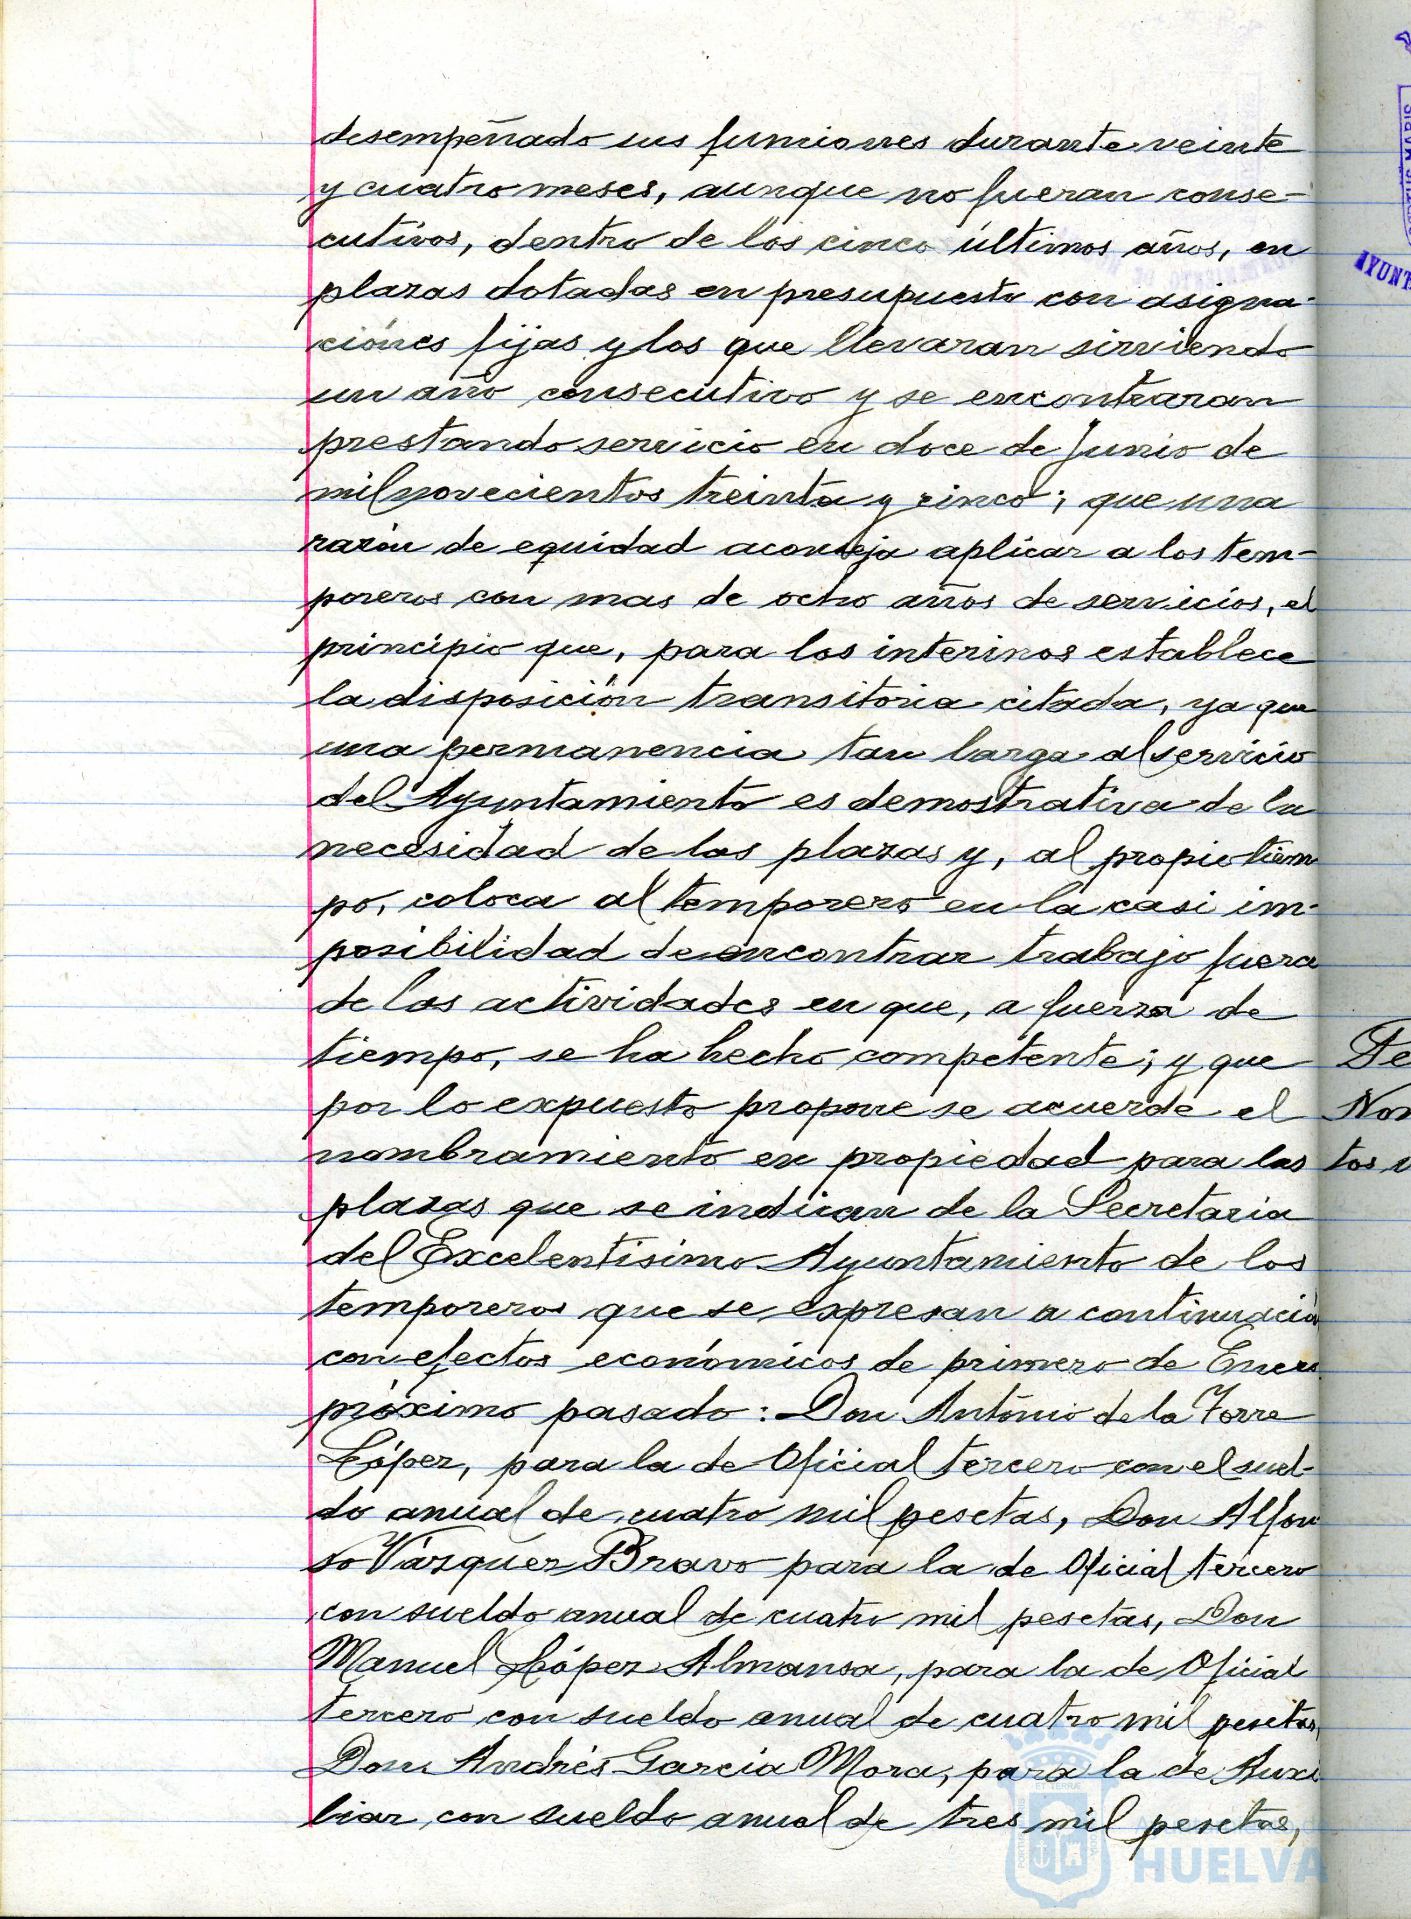 desempeñado sus funciones durante veinte
y cuatro meses, aunque no fueran conse-
cutivos, dentro de los cinco últimos años, en
plazas dotadas en presupuesto con asigna-
ciónes fijas y los que llevaran sirviendo
un año consecutivo y se encontraran
prestando servicio en doce de Junio de
mil novecientos treinta y cinco; que una
razón de equidad aconseja aplicar a los tem-
poreros con mas de ocho años de servicios, el
principio que, para los interinos establece
la disposición transitoria citada, ya que
una permanencia tan larga al servicio
del Ayuntamiento es demostrativa de la
necesidad de las plazas y, al propio tiem
po, coloca al temporero en la casi im-
posibilidad de encontrar trabajo fuera
de las actividades en que, a fuerza de
tiempo, se ha hecho competente; y que
por lo expuesto propone se acuerde el
nombramiento en propiedad para las
plazas que se indican de la Secretaria
del Excelentisimo Ayuntamiento de los
temporeros que se expresan a continuación
con efectos económicos de primero de Enero
próximo pasado: Don Antonio de la Torre
López, para la de Oficial tercero con el suel-
do anual de cuatro mil pesetas, Don Alfon
so Vázquez Bravo para la de Oficial tercero
con sueldo anual de cuatro mil pesetas, Don
Manuel López Almansa, para la de Oficial
tercero con sueldo anual de cuatro mil pesetas,
Don Andrés Garcia Mora, para la de Auxi
liar, con sueldo anual de tres mil pesetas,
HUELVA